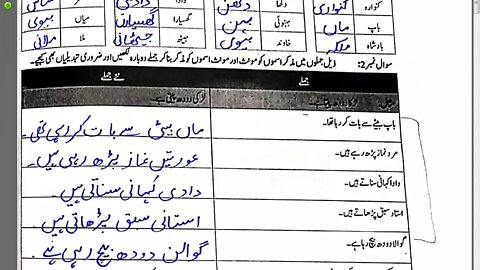 کنوارہ کنواری دلھا دلھن دادی
باپ ماں بہنوئی بہن گھسیارا گھسیارن میاں بیوی
بادشاہ ملکہ خاوند بیوی جیٹھ جیٹھانی ملا ملانی
سوال نمبر2: ذیل جملوں میں مذکر اسموں کو مونث اور مونث اسموں کو مذکر بنا کر جملے دوبارہ لکھیں اور ضروری تبدیلیاں بھی کیجیے۔
جملے نئے جملے
مثال: لڑکا دودھ پیتا ہے۔ لڑکی دودھ پیتی ہے۔
باپ بیٹے سے بات کر رہا تھا۔ ماں بیٹی سے بات کر رہی تھی۔
مرد نماز پڑھ رہے ہیں۔ عورتیں نماز پڑھ رہی ہیں۔
دادا کہانی سناتے ہیں۔ دادی کہانی سناتی ہیں۔
استاد سبق پڑھاتے ہیں۔ استانی سبق پڑھاتی ہیں۔
گوالا دودھ بیچ رہا ہے۔ گوالن دودھ بیچ رہی ہے۔